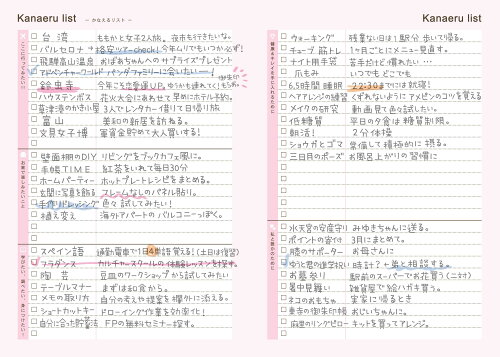 Kanaeru list
－ かなえるリスト －
ここに行ってみたい！
台湾 ももかと女子2人旅。夜市も行きたいな。
バルセロナ 格安ツアーcheck! 今年ムリでもいつか必ず!
飛騨高山温泉 おばあちゃんへのサプライズプレゼント
アドベンチャーワールド パンダファミリーに会いたーい！
鈴虫寺 今年こそ恋愛運UP。ゆうかも連れてく！
御朱印も
ハウステンボス 花火大会にあわせて早めにホテル予約。
草津湯めがき小屋 3人でレンタカー借りて日帰り旅
富山 美和の新居を訪ねる。
文具女子博 軍資金貯めて大人買いする！
壁面棚のDIY リビングをブックカフェ風に。
手帳TIME 紅茶をいれて毎日30分
ホームパーティー ホットプレートレシピをまとめる。
玄関に写真を飾る フレームなしのパネル貼り。
手作りドレッシング 色々試してみたい！
植え変え 海外アパートのバルコニーっぽく。
学びたい、調べたい、身につけたい！
スペイン語 通勤電車で1日4単語覚える！(土日は復習)
フラダンス カルチャースクールの体験レッスンを探す。
陶芸 豆皿のワークショップから試してみたい
テーブルマナー まずは和食から。
メモの取り方 自分の考えや提案を欄外に添える。
ショートカットキー ドローイング作業を効率化！
自分に合った貯蓄法 FPの無料セミナー探す。
Kanaeru list
ウォーキング 残業ない日は1駅分歩いて帰る。
チューブ筋トレ 1ヶ月ごとにメニュー見直す。
ナイト用手袋 苦手だけど慣れたい…
爪もみ いつでもどこでも
6.5時間睡眠 22:30までには就寝！
ヘアアレンジの練習 くずれないようにアメピンのコツを覚える
メイクの研究 動画見て色々試したい。
低糖質 平日の夕食は糖質制限。
朝活！ 2分体操
ショウガとゴマ 意備して積極的に摂る。
三日月のポーズ お風呂上がりの習慣に
水天宮の安産守り みゆきちゃんに送る。
ポイントの寄付 3月にまとめて。
膝のサポーター お母さんに
ゆうと君の進学祝い 時計？←弟と相談する。
お墓参り 駅前のスーパーでお花買う(ニオ)
暑中見舞い 雑貨屋で絵ハガキ買う。
ネコのおもちゃ 実家に帰るとき
東寺の御朱印帳 おじいちゃんに。
麻里のリングピロー キットを買ってアレンジ。